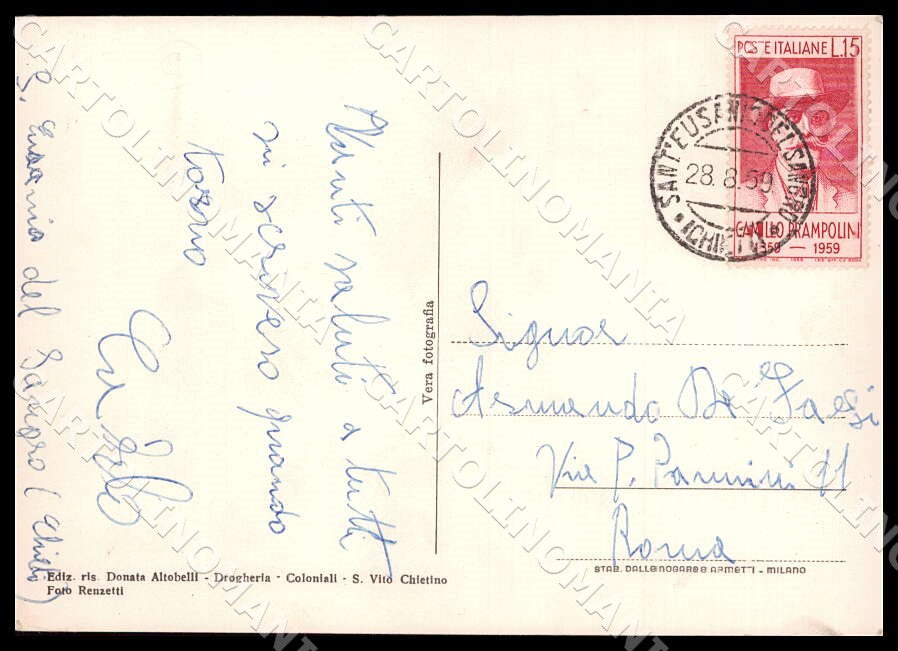 POSTE ITALIANE L.15
CAMILLO PRAMPOLINI
1859 — 1959
SANT'EUSANIO DEL SANGRO
28.8.59
(CHIETI)
S. Eusanio del Sangro (Chieti)
saluti a tutti
mi scrivero quando
torno
Vera fotografia
Signor
Armando De
Via P. Pannini 11
Roma
Ediz. ris. Donata Altobelli - Drogheria - Coloniali - S. Vito Chietino
Foto Renzetti
STAB. DALLE NOGARE E ARMETTI - MILANO
CARTOLINOMANIA